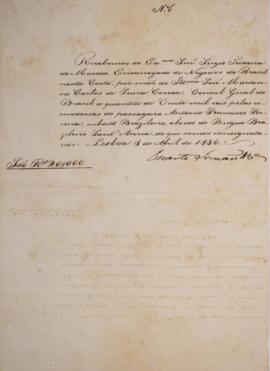 N.º 6
Recebemos do Ex.mo Snr. Sergio Teixeira
de Macedo, Encarregado de Negocios do Brazil
nesta Corte, por mão do Illmo Snr.
Carlos de Souza Correa, Consul Geral do
Brazil a quantia de Vinte mil reis pelas
do passageiro Antonio Francisco
subdito Brazileiro, abordo do Brigue Bra-
zileiro Sant' Anna, de que somos consignata-
rios. Lisboa 8 de Abril de 1836.
São R.s 20,000